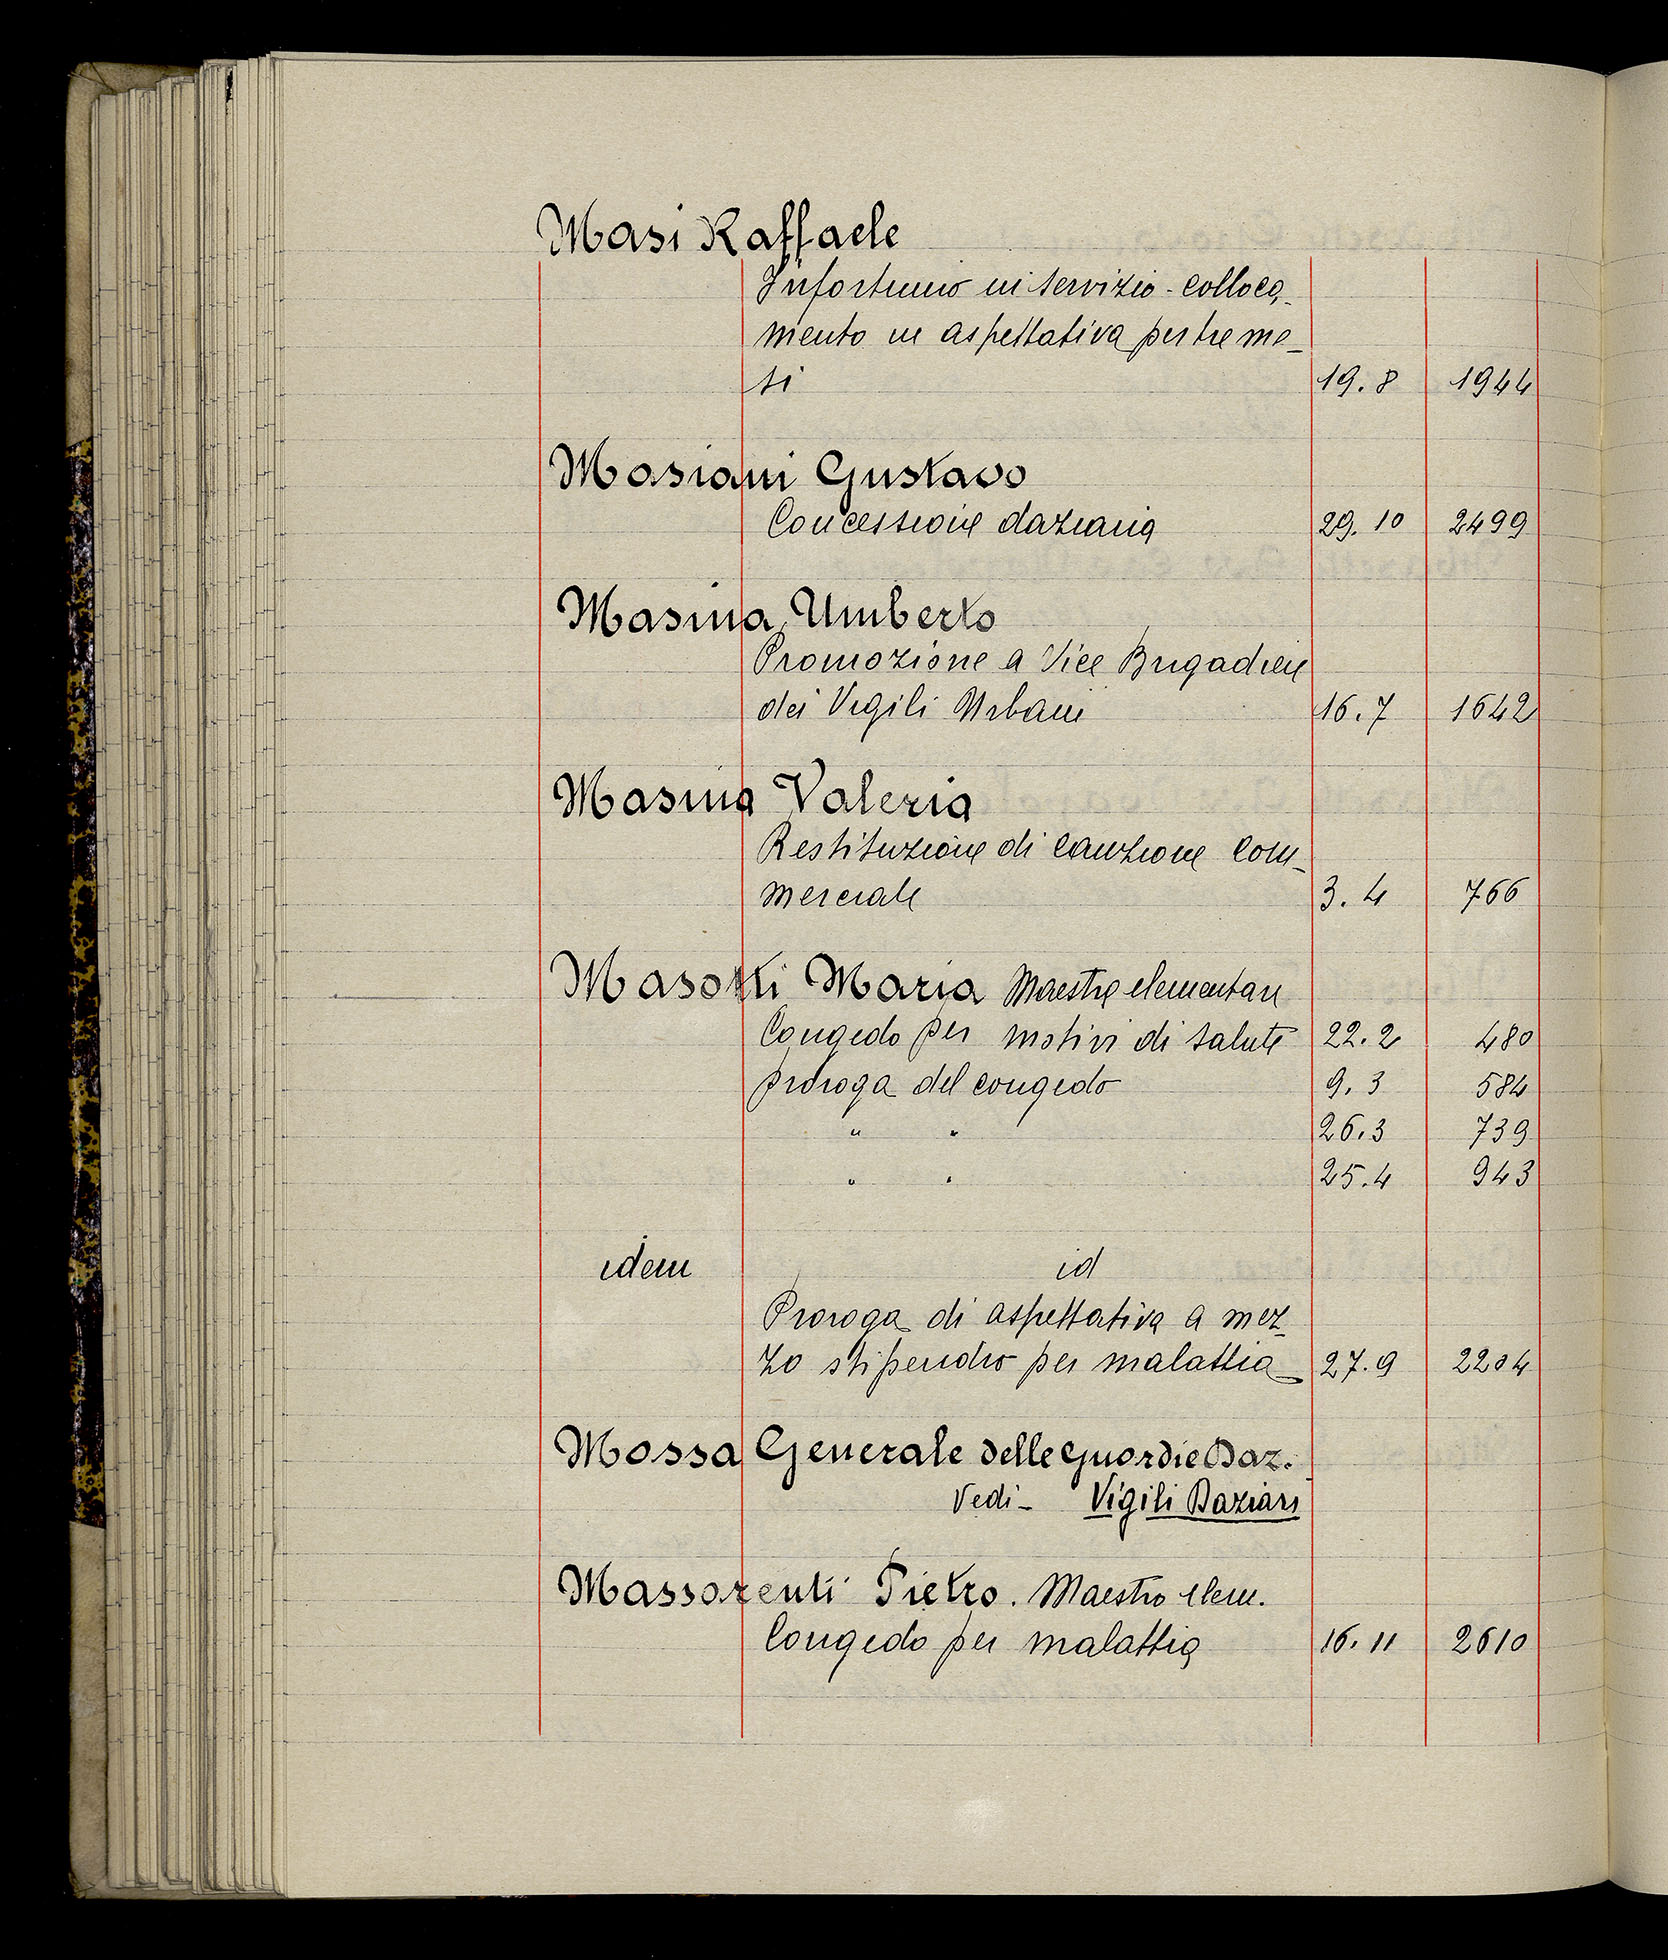 Masi Raffaele
Infortunio in servizio - colloca-
mento in aspettativa per tre me-
si 19.8 1944
Masiani Gustavo
Concessione daziaria 29.10 2499
Masina Umberto
Promozione a Vice Brigadiere
dei Vigili Urbani 16.7 1642
Masina Valeria
Restituzione di cauzione com-
merciale 3.4 766
Masotti Maria Maestra elementare
Congedo per motivi di salute 22.2 480
proroga del congedo 9.3 584
" " 26.3 739
" " 25.4 943
idem id
Proroga di aspettativa a mez-
zo stipendio per malattia 27.9 2204
Massa Generale delle Guardie Daz.
Vedi - Vigili Daziari
Massarenti Pietro. Maestro elem.
Congedo per malattia 16.11 2610